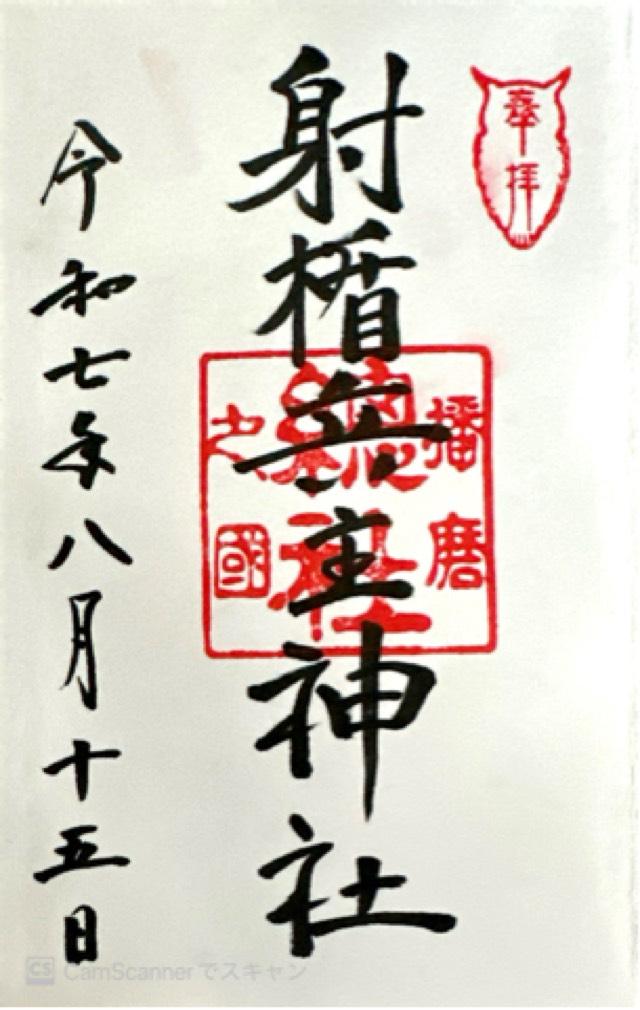 奉拝
射楯兵主神社
播磨
総社
之國
令和七年八月十五日
CS CamScannerでスキャン